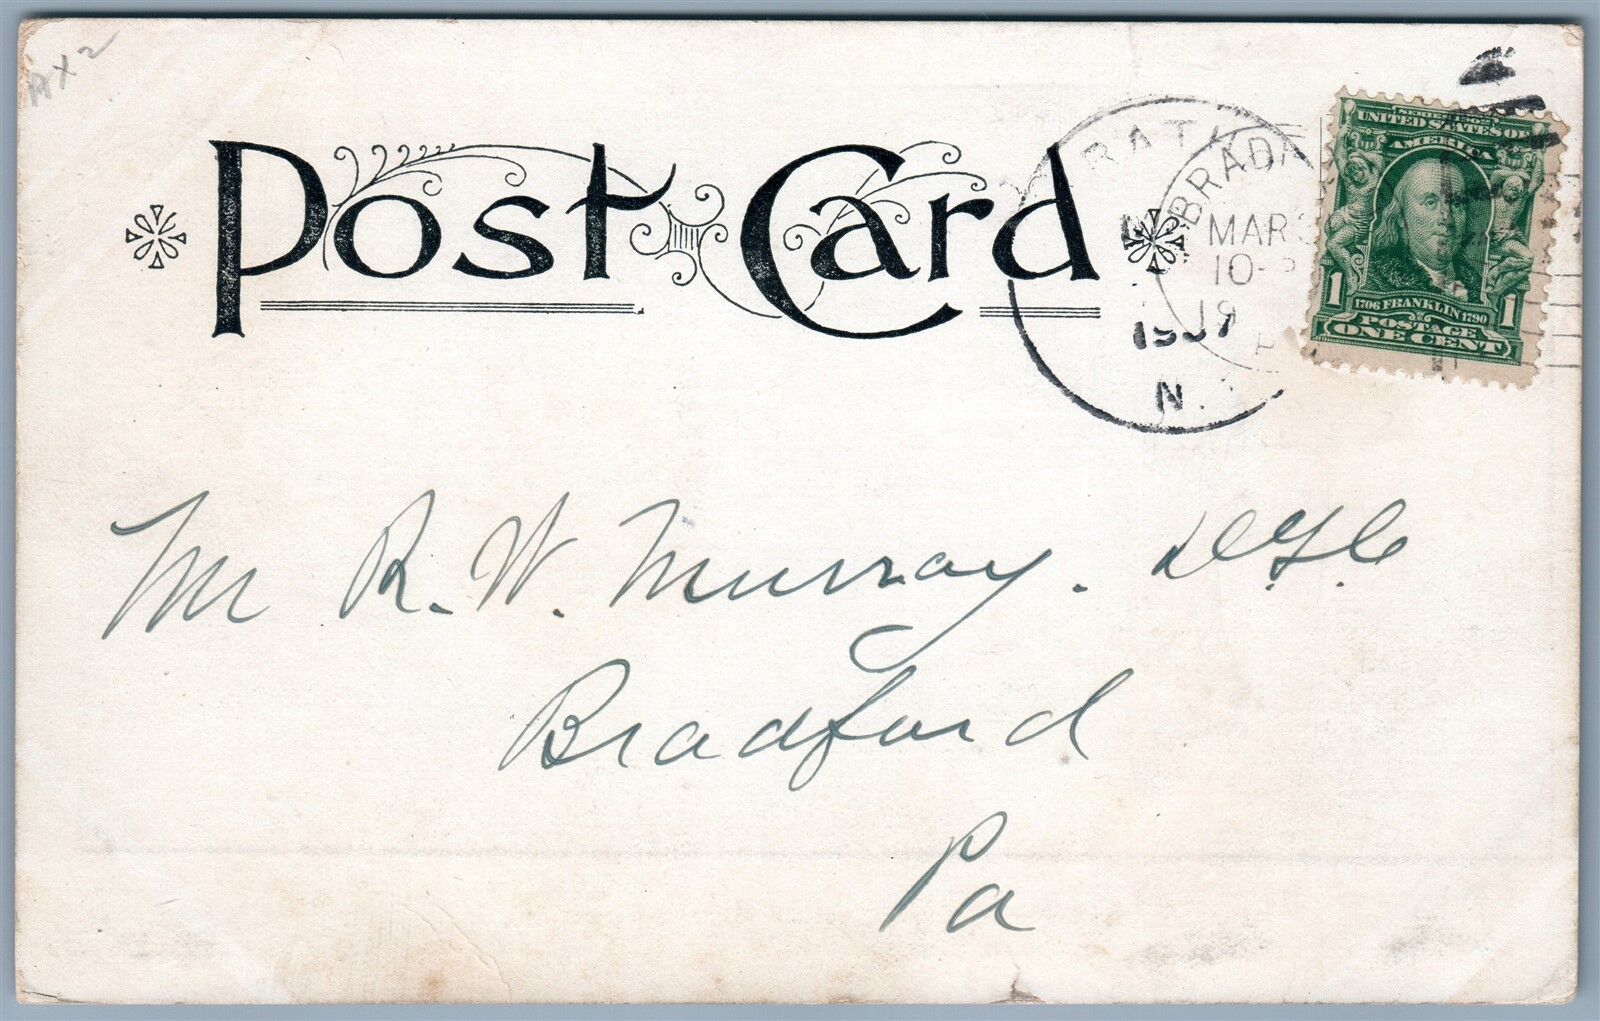 AX2
Post Card
BRADF
MAR
10-
19
1907
N.
UNITED STATES OF
AMERICA
1 1706 FRANKLIN 1790 1
POSTAGE
ONE CENT
Mr R. W. Murray.
Bradford
Pa